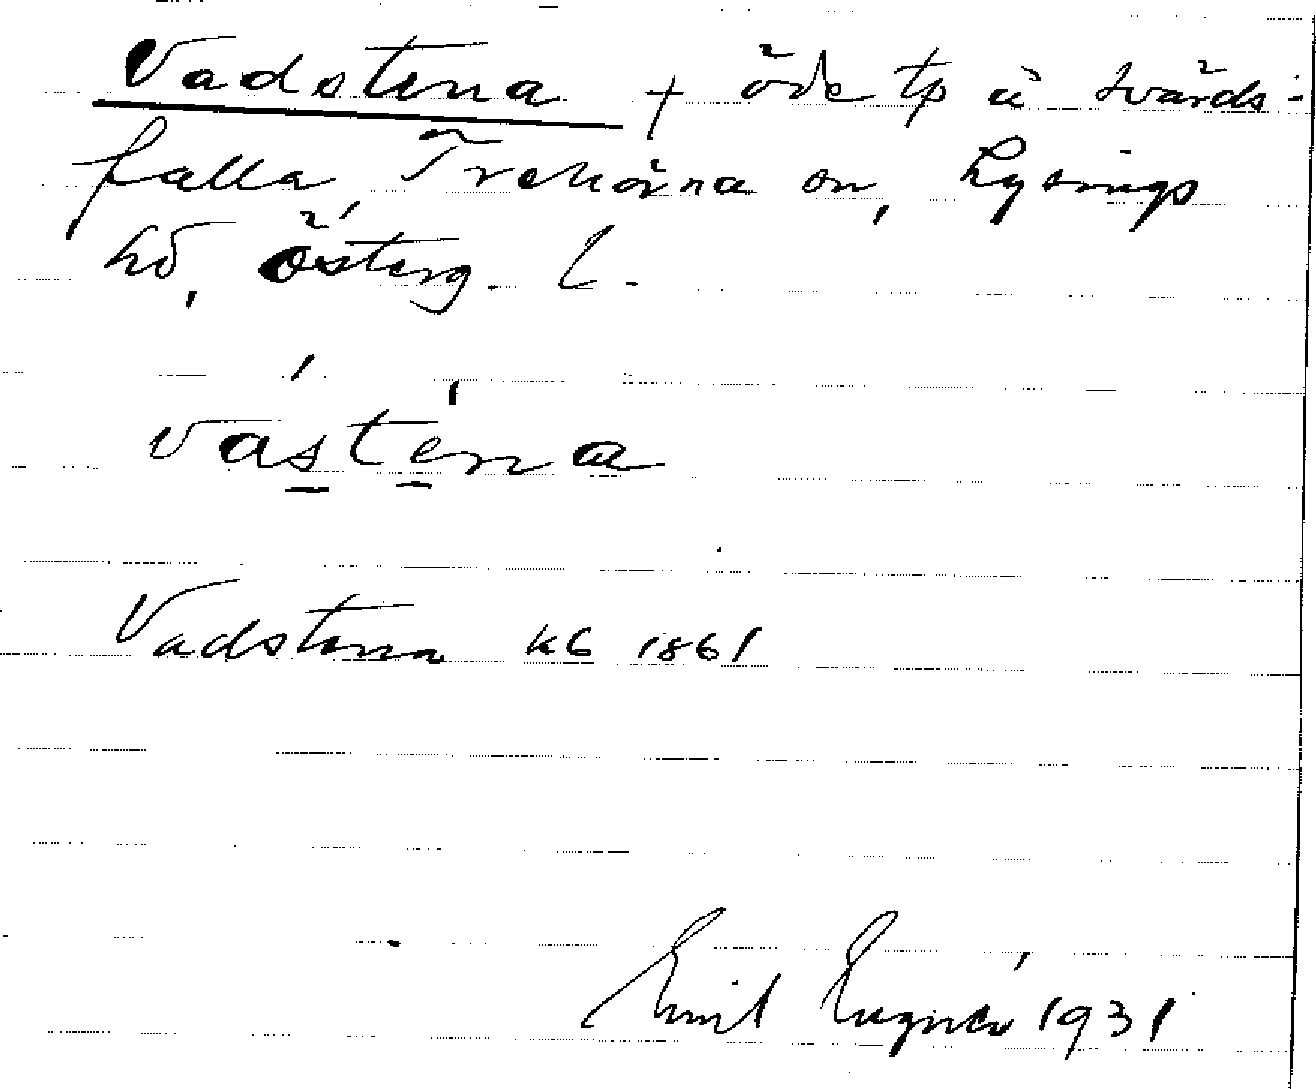 Vadstena + öde tp å Svärds-
falla, Trehörna sn, Lysings
hd, Österg. l.
vásténa
Vadstena kb 1861
Emil 1931